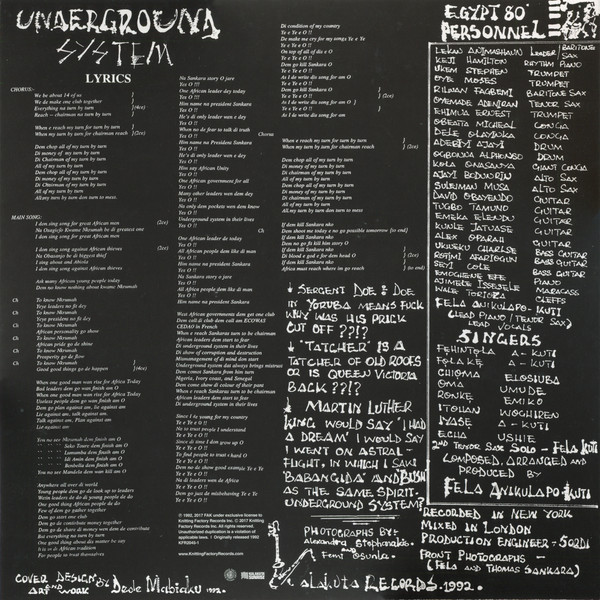 UNDERGROUND
SYSTEM
LYRICS
CHORUS:-
We be about 14 of us
We do make one club together
Everything na turn by turn (4ce)
Reach - chairman na turn by turn
When e reach my turn for turn by turn
When my turn by turn for chairman reach (2ce)
Dem chop all of my turn by turn
Di money of my turn by turn
Di Chairman of my turn by turn
All of my turn by turn
Dem chop all of my turn by turn
Di money of my turn by turn
Di Chairman of my turn by turn
All of my turn by turn
All my turn by turn don turn to mess.
MAIN SONG:
I don sing song for great African men (2ce)
Na Osagiefo Kwame Nkrumah be di greatest one
I don sing song for great African men
I don sing song against African thieves (2ce)
Na Obasanjo be di biggest thief
I sing about and Abiola
I don sing song against African thieves
Ask many African young people today
Dem no know nothing about kwame Nkrumah
Ch To know Nkrumah
Yeye leaders no fit dey
Ch To know Nkrumah
Yeye presidents no fit dey
Ch To know Nkrumah
African personality go show
Ch To know Nkrumah
African pride go de shine
Ch To know Nkrumah
Prosperity go de flow
Ch To know Nkrumah
Good good things go de happen (14ce)
When one good man was rise for Africa Today
Bad leaders dem go vom finish am O
When one good man was rise for Africa Today
Useless people dem go vom finish am O
Dem go plan against am, lie against am
Lie against am, talk against am.
Talk against am, Plan against am
Lie against am
Anyhwere all over di world
Young people dem go de look up to leaders
Wetin leaders de do di young people de do
One good thing African people de do
Few of dem go gather together
Dem go start one club
Dem go de contribute money together
Dem go de share di money wen dem de contribute
But everything na turn by turn
One good thing about dis matter be say
It is so di African tradition
For people to trust one another
Na Sankara story O jare
Yes O !!!
One African leader dey today
Yes O !!!
Him name na president Sankara
Yes O !!!
He's di only leader wen e dey
Yes O !!!
When no de fear to talk di truth Chorus
Yes O !!!
Him name na President Sankara
Yes O !!!
He's di only leader wen e dey
Yes O !!!
Him say African Unity
Yes O !!
One African government for all
Yes O !!
Many other leaders wen dem dey
Yes O !!
Na only dem pockets wen dem know
Yes O !!
Underground system in their lives
Yes O !!
Ch
One African leader de today
Yes O !!
All African people dem like di man
Yes O !!
Na Sankara story o jare
Yes O !!
All Africa people dem like di man
Yes O !!
Him name na president Sankara
West African governments don get one club
Dem call di club dem call am ECOWAS
CEDAO in French
When e reach Sankaras turn to be chairman
African leaders dem start to fear
Di underground system in their lives
Di show of corruption and destruction
Mismanagement of di mind dem start
Underground system dat always brings mistrust
Dem comot Sankara from him turn
Nigeria, Ivory coast, and Senegal
Dem come show di colour of their pant
When e reach Sankaras turn to be chairman
African leaders dem start to fear
Di underground system in their lives
Since I de young for my country
Ye e Ye e O !!
Na so trust people I understand
Ye e Ye e O !!
Since di time I don grow up O
Ye e Ye e O !!
To find people to trust e hard O
Ye e Ye e O !!
Dem no de show good example Ye e
Ye e Ye e O !!
Na di leaders wen de Africa
Ye e Ye e O !!
Dem go just de misbehaving Ye e
Ye e Ye e O !!
© 1992, 2017 FAK under exclusive license to
Knitting Factory Records Inc. ℗ 2017 Knitting
Factory Records Inc. All rights reserved.
Unauthorized duplication is a violation of
applicable laws. | Originally released 1992
KFR2045-1
www.KnittingFactoryRecords.com
Di condition of my country
Ye e Ye e O !!
De make me cry for my songs Ye e Ye
Ye e Ye e O !!
On top of all of dis e O
Ye e Ye e O !!
Dem go kill Sankara O
Ye e Ye e O !!
As I de write dis song for am O
Ye e Ye e O !!
Dem go kill Sankara O
Ye e Ye e O !! (2ce)
As I de write dis song for am O
Ye e Ye e O !!
As I de write dis song for am
When e reach my turn for turn by turn
When my turn by turn for chairman reach (2ce)
Dem chop all of my turn by turn
Di money of my turn by turn
Di chairman of my turn by turn
All of my turn by turn
Dem chop all of my turn by turn
Di money of my turn by turn
Di chairman of my turn by turn
All of my turn by turn
All my turn by turn don turn to mess
If dem kill Sankara nko
Dem shoot me today e no go possible tomorrow (to end)
If dem kill Sankara nko
Dem no go fit kill him story O
If dem kill Sankara nko
Di blood e god for dem head O (2ce)
If dem kill Sankara nko
Africa must reach where im go reach (to end)
SERGENT DOE! DOE
IN YORUBA MEANS FUCK
WHY WAS HIS PRICK
CUT OFF ??!?
'TATCHER' IS A
TATCHER OF OLD ROOFS
OR IS QUEEN VICTORIA
BACK ??!?
MARTIN LUTHER
KING WOULD SAY 'I HAD
A DREAM' I WOULD SAY
I WENT ON ASTRAL-
FLIGHT, IN WHICH I SAW
'BABANGIDA' AND 'BUSH'
AS THE SAME SPIRIT.
UNDERGROUND SYSTEM?
PHOTOGRAPHS BY:-
Alexandra Stephanakis.
and
Femi Osunla.
KALAKUTA RECORDS. 1992.
EGYPT 80'
PERSONNEL
LEKAN ANIMASHAUN LEADER / BARITONE SAX
KEJI HAMILTON RHYTHM PIANO
UKEM STEPHEN TRUMPET
OYE MOSES TRUMPET
RILWAN FAGBEMI BARITONE SAX
OYEMADE ADENIRAN TENOR SAX
EHIMUA ERNEST TRUMPET
OBEATTA MICHEAL CONGA
DELE OLAYINKA CONGA
ADEBIYI AJAYI DRUM
OGBONNA ALPHONSO DRUM
KOLA ONASANYA GIANT CONGA
AJAYI BODUNRIN ALTO SAX
SULEIMAN MUSA ALTO SAX
DAVID OBAYENDO GUITAR
YUGBO TAMUNO GUITAR
EMEKA ELENDU GUITAR
KUNLE JATUASE GUITAR
ALEX OPARAH GUITAR
UKUEKU CHARLSE BASS GUITAR
ROTIMI AFARIOGUN BASS GUITAR
SEYI COLE BASS GUITAR
EMOGHENE EFE PIANO
AJIMERE ISSEJELE MARACASS
WALE TORIOLA CLEFFS
FELA ANIKULAPO-KUTI
(LEAD PIANO / TENOR SAX)
LEAD VOCALS
SINGERS
FEHINTOLA A-KUTI
FOLAKE A-KUTI
CHIOMA ELOSIUBA
OMA UMUDE
RONKE EMIKO
ITOHAN NOGHIREN
IYASE A-KUTI
ECHA USHIE
2ND TENOR SAX SOLO - FELA KUTI
COMPOSED, ARRANGED AND
PRODUCED BY
FELA ANIKULAPO KUTI
RECORDED IN NEW YORK
MIXED IN LONDON
PRODUCTION ENGINEER - SORDI
FRONT PHOTOGRAPHS -
(FELA AND THOMAS SANKARA)
COVER DESIGN BY
ART AND WORK Dede Mabiaku 1992.